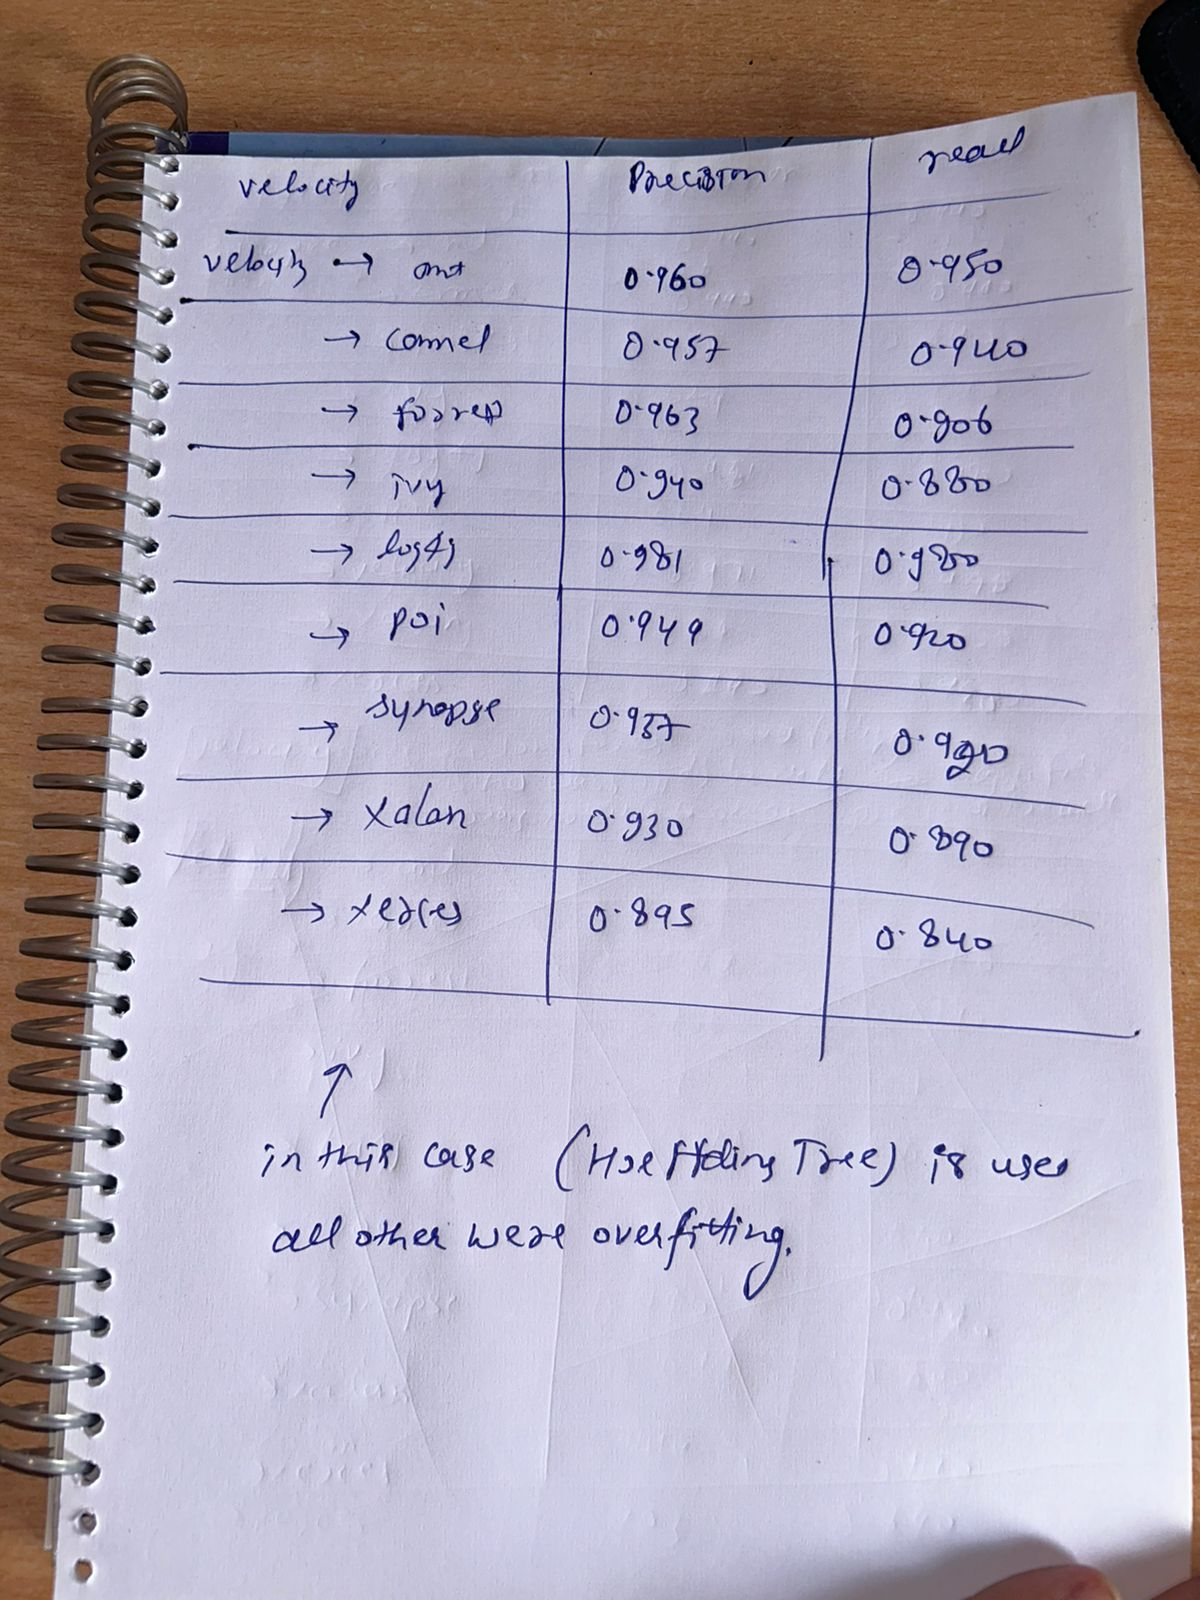 velocity Precision recall
velocity → ant 0.960 0.950
→ camel 0.957 0.940
→ forrest 0.963 0.906
→ ivy 0.940 0.880
→ log4j 0.981 0.980
→ poi 0.949 0.920
→ synapse 0.937 0.920
→ xalan 0.930 0.890
→ xerces 0.895 0.840
↑
in this case (Hoeffding Tree) is used
all other were overfitting.